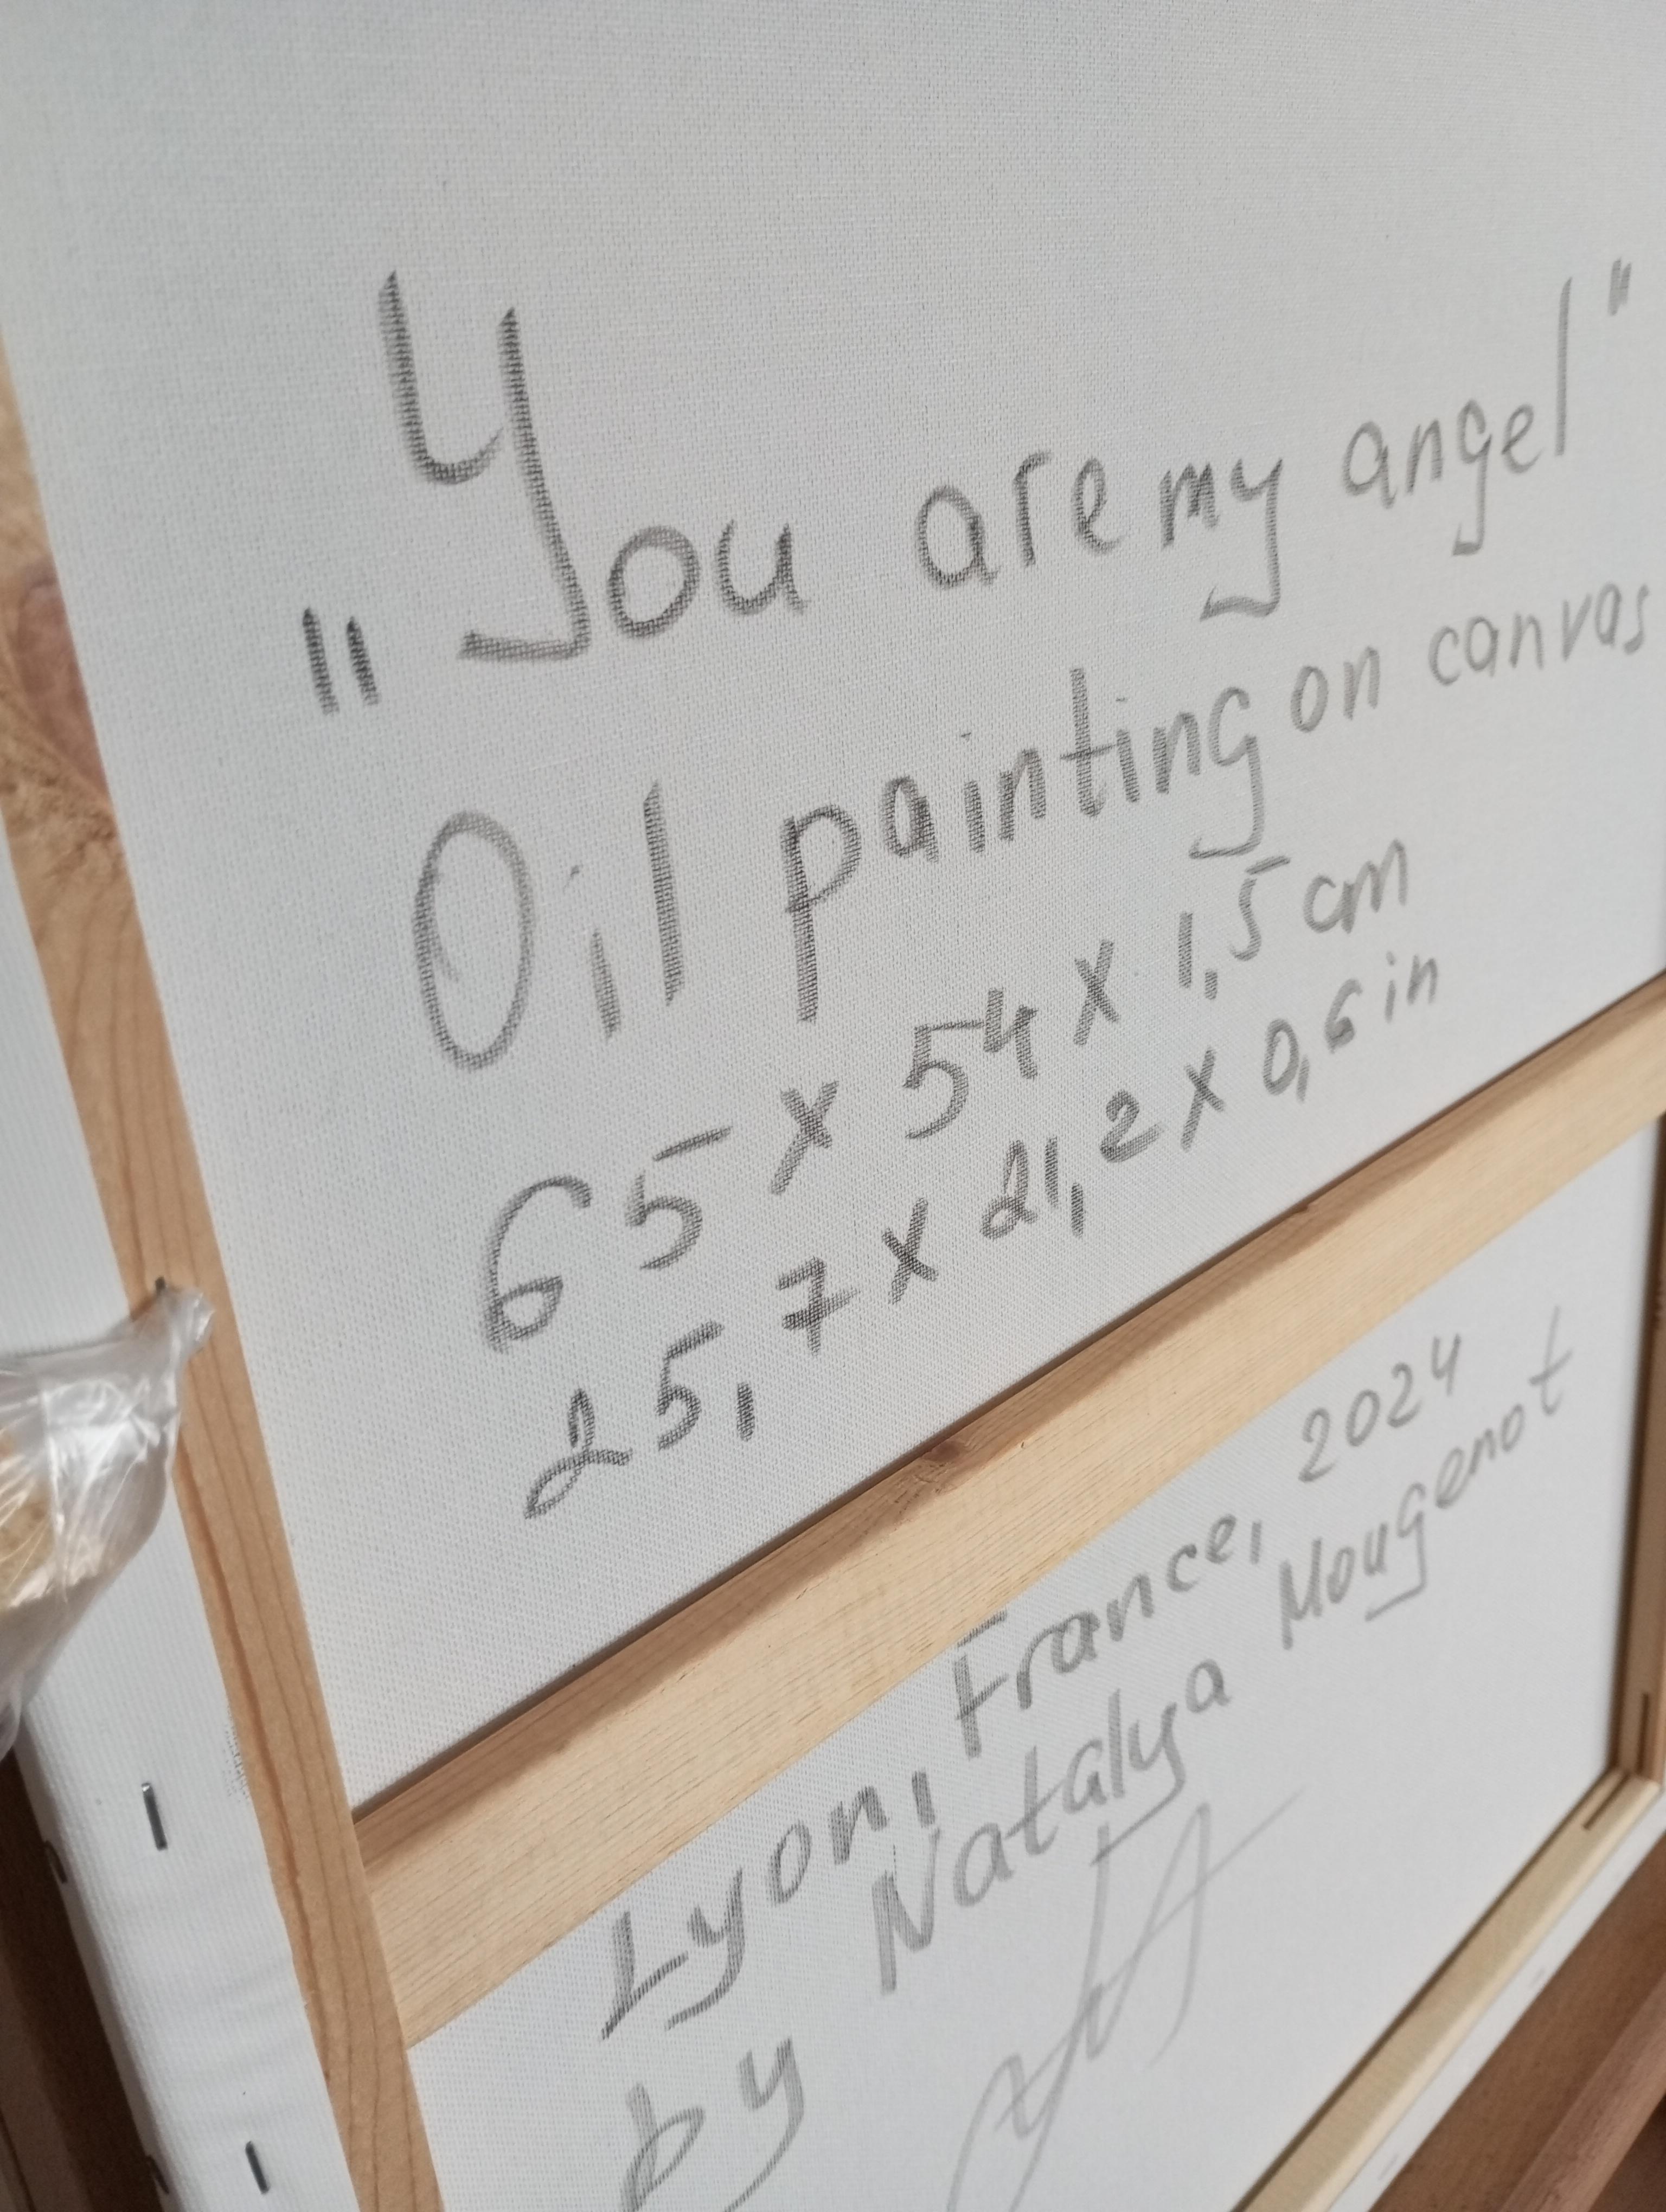 „You are my angel"
Oil painting on canvas
65 x 54 x 1,5 cm
25,7 x 21,2 x 0,6 in
Lyon, France, 2024
by Natalya Mougenot